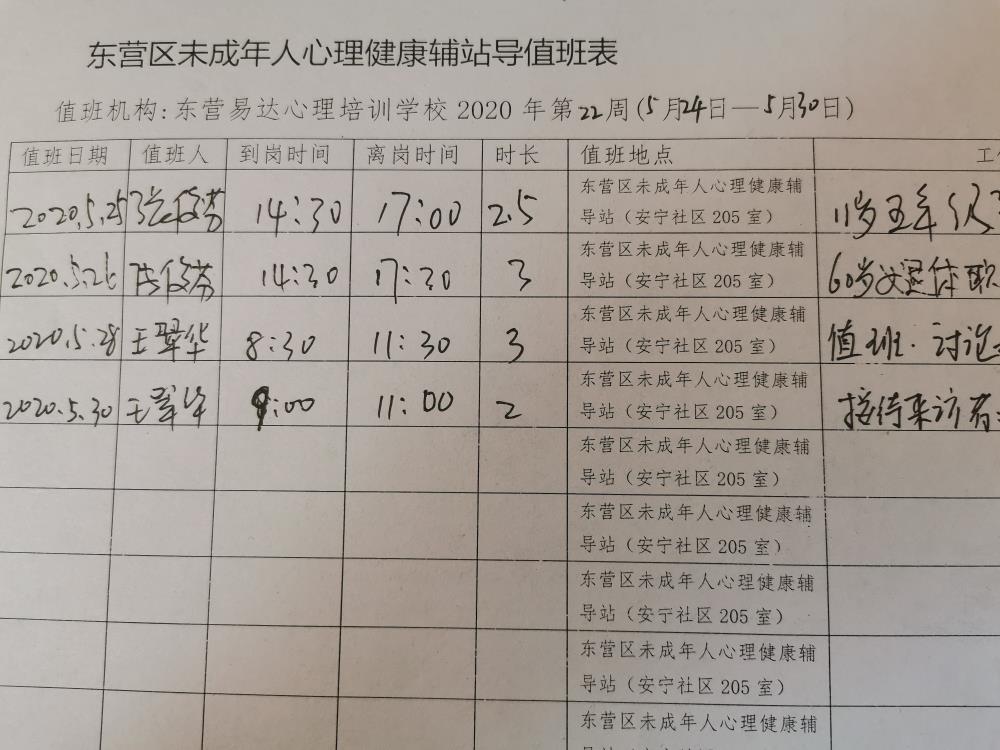 东营区未成年人心理健康辅站导值班表
值班机构:东营易达心理培训学校 2020 年第22周(5月24日—5月30日)
值班日期 值班人 到岗时间 离岗时间 时长 值班地点 工
东营区未成年人心理健康辅
2020.5.25 14:30 17:00 2.5 导站（安宁社区 205 室） 11岁五年级
东营区未成年人心理健康辅
2020.5.26 14:30 17:30 3 导站（安宁社区 205 室） 60岁女退休职
东营区未成年人心理健康辅
2020.5.28 王翠华 8:30 11:30 3 导站（安宁社区 205 室） 值班.讨论
东营区未成年人心理健康辅
2020.5.30 王翠华 9:00 11:00 2 导站（安宁社区 205 室） 接待来访者
东营区未成年人心理健康辅
导站（安宁社区 205 室）
东营区未成年人心理健康辅
导站（安宁社区 205 室）
东营区未成年人心理健康辅
导站（安宁社区 205 室）
东营区未成年人心理健康辅
导站（安宁社区 205 室）
东营区未成年人心理健康辅